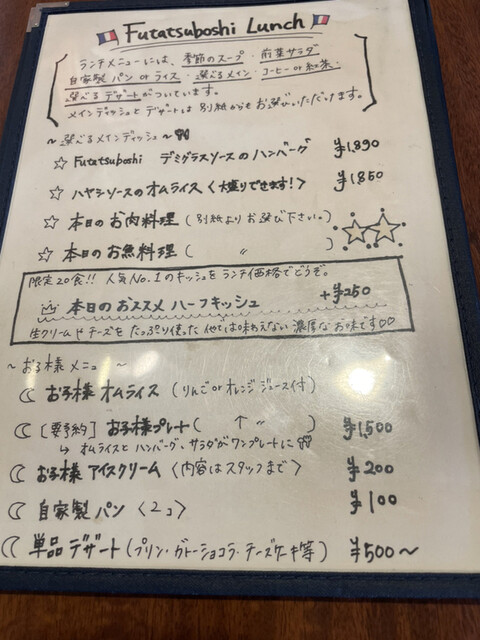 Futatsuboshi Lunch
ランチメニューには、季節のスープ・前菜サラダ
自家製 パン or ライス・選べるメイン・コーヒー or 紅茶・
選べる デザートがついています。
メインディッシュとデザートは 別紙からも お選びいただけます。
〜選べるメインディッシュ〜
☆ Futatsuboshi デミグラスソースのハンバーグ ¥1,890
☆ ハヤシソースのオムライス〈大盛りできます!〉 ¥1,850
☆ 本日のお肉料理(別紙よりお選び下さい。)
☆ 本日のお魚料理( 〃 )
限定20食!! 人気No.1のキッシュをランチ価格でどうぞ。
本日のおススメ ハーフキッシュ +¥250
生クリームやチーズを たっぷり使った 他では味わえない 濃厚な お味です♡♡
〜お子様メニュー〜
お子様 オムライス (りんご or オレンジジュース付)
[要予約] お子様プレート( ↑〃 ) ¥1,500
↳ オムライスと ハンバーグ、サラダが ワンプレートに
お子様 アイスクリーム 〈内容はスタッフまで〉 ¥200
自家製 パン 〈2コ〉 ¥100
単品デザート(プリン・ガトーショコラ・チーズケーキ等) ¥500〜